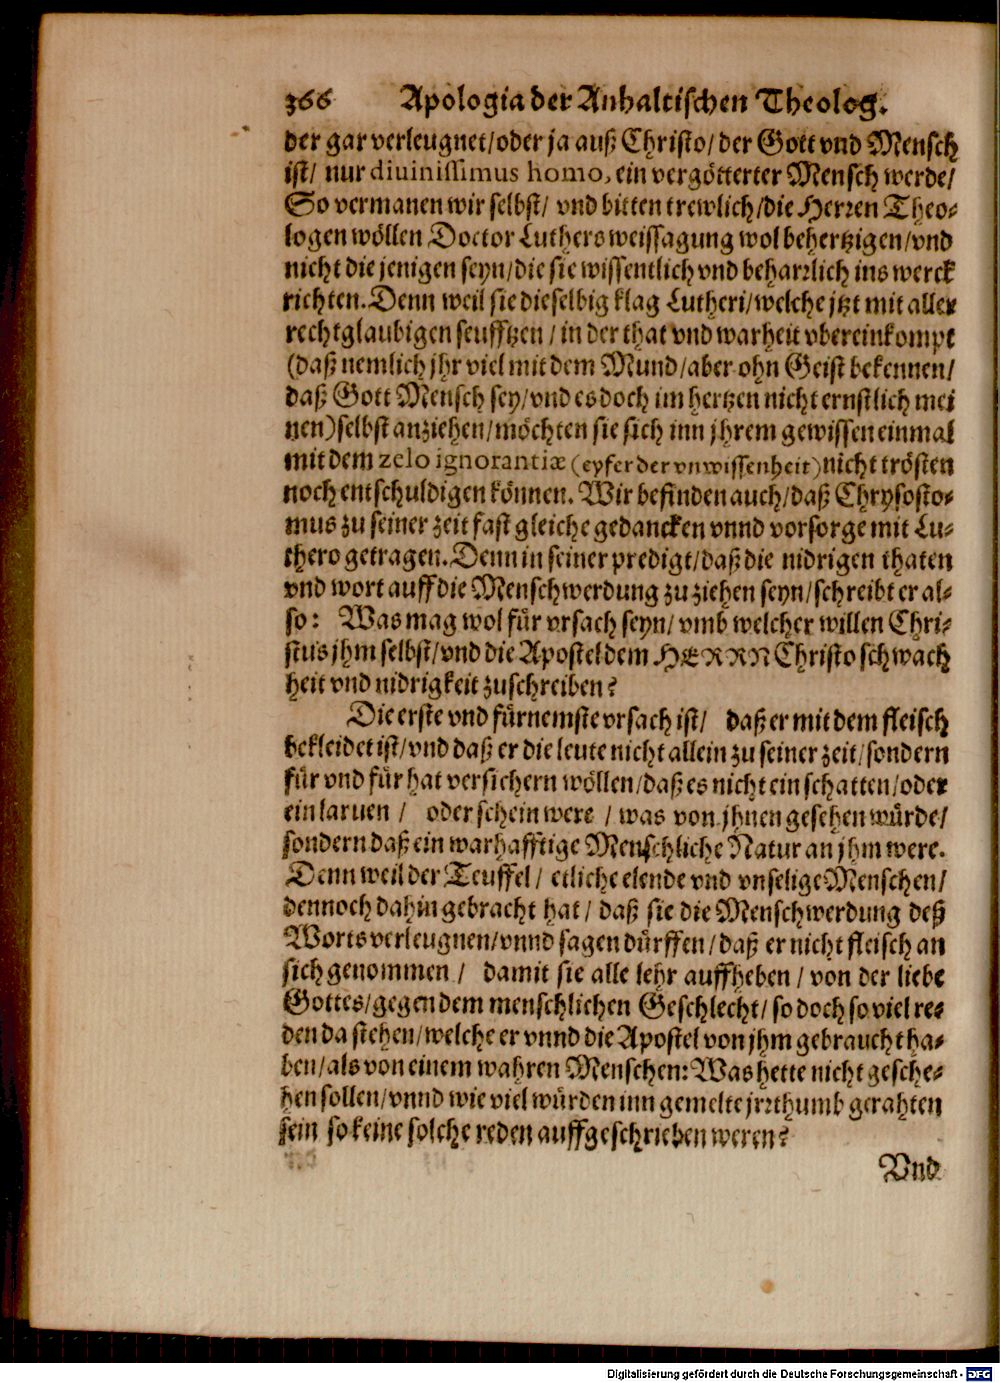 366 Apologia der Anhaltischen Theolog.
der gar verleugnet/oder ja auß Christo/der Gott vnd Mensch
ist/ nur diuinissimus homo, ein vergötterter Mensch werde/
So vermanen wir selbst/ vnd bitten trewlich/die Herren Theo-
logen wöllen Doctor Luthers weissagung wol behertzigen/vnd
nicht die jenigen seyn/die sie wissentlich vnd beharrlich ins werck
richten. Denn weil sie dieselbig klag Lutheri/welche jtzt mit aller
rechtglaubigen seufftzen/in der that vnd warheit vbereinkompt
(daß nemlich jhr viel mit dem Mund/aber ohn Geist bekennen/
daß Gott Mensch sey/vnd es doch im hertzen nicht ernstlich mei
nen) selbst anziehen/möchten sie sich inn jhrem gewissen einmal
mit dem zelo ignorantiæ (eyfer der vnwissenheit) nicht trösten
noch entschuldigen können. Wir befinden auch/daß Chrysosto-
mus zu seiner zeit fast gleiche gedancken vnnd vorsorge mit Lu-
thero getragen. Denn in seiner predigt/daß die nidrigen thaten
vnd wort auff die Menschwerdung zu ziehen seyn/schreibt er al-
so: Was mag wol für vrsach seyn/vmb welcher willen Chri-
stus jhm selbst/vnd die Apostel dem HERRN Christo schwach
heit vnd nidrigkeit zuschreiben?
Die erste vnd fürnemste vrsach ist/ daß er mit dem fleisch
bekleidet ist/vnd daß er die leute nicht allein zu seiner zeit/sondern
für vnd für hat versichern wöllen/daß es nicht ein schatten/oder
ein laruen / oder schein were / was von jhnen gesehen würde/
sondern daß ein warhafftige Menschliche Natur an jhm were.
Denn weil der Teuffel/ etliche elende vnd vnselige Menschen/
dennoch dahin gebracht hat/ daß sie die Menschwerdung deß
Worts verleugnen/vnnd sagen dürffen/daß er nicht fleisch an
sich genommen / damit sie alle lehr auffheben/von der liebe
Gottes/gegen dem menschlichen Geschlecht/so doch so viel re-
den da stehen/welche er vnnd die Apostel von jhm gebraucht ha-
ben/als von einem wahren Menschen: Was hette nicht gesche-
hen sollen/vnnd wie viel würden inn gemelte jrrthumb gerahten
sein so keine solche reden auffgeschrieben weren?
Vnd
Digitalisierung gefördert durch die Deutsche Forschungsgemeinschaft - DFG